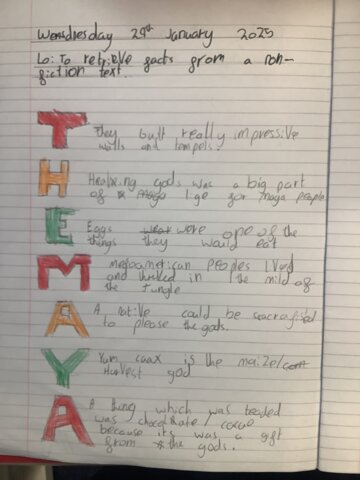 Wensdesday 29th January 2025
Lo: To retrieve facts from a non-
fiction text.
T
they built really impressive
walls and tempels.
H
Having gods was a big part
of life for maya people
E
Eggs were one of the
things they would eat
M
mesoamerican peoples lived
and in the mild of
the Jungle
A
A native could be sacrafised
to please the gods.
Y
Yum caax is the maize/corn
Harvest god
A
A thing which was traded
was chocolate / cacue
because its was a gift
from the gods.